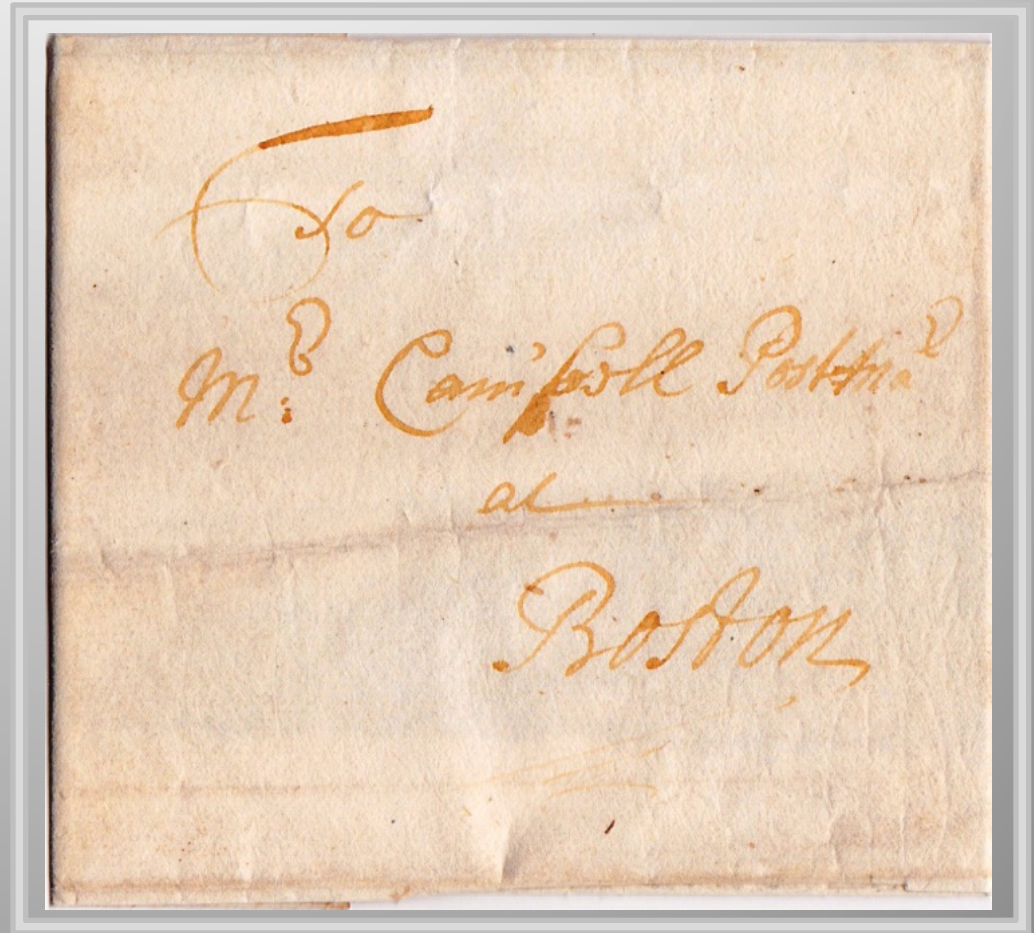 To
Mr: Campbell Postmar
at
Boston